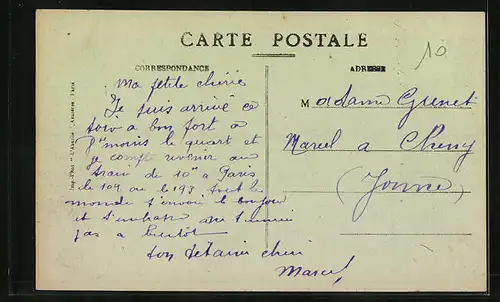 CARTE POSTALE
CORRESPONDANCE
ADRESSE
10
Ma petite chérie
Je suis arrivé ce
soir a bon port a
moins le quart et
je compte revenir au
train de 10 a Paris
le ou le tout le
monde t'envoi le bonjour
et t'embrasse ne t'ennui
pas a bientôt
ton chéri
Marcel
Madame Grenet
Marcel a Cheny
(Yonne)